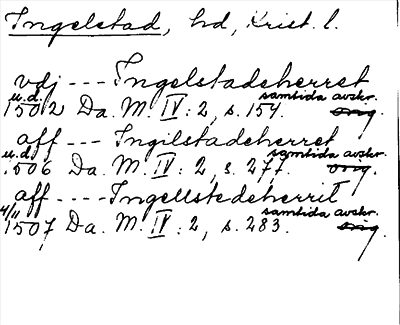 Ingelstad, hd, Krist. l.
vdj --- Ingelstadeherret
u.d. samtida avskr.
1502 Da. M. IV: 2, s. 154. orig.
aff --- Ingilstadeherret
u.d. samtida avskr.
1506 Da. M. IV: 2, s. 277. orig.
aff --- Ingellstedeherrit
4/11 samtida avskr.
1507 Da. M. IV: 2, s. 283. orig.